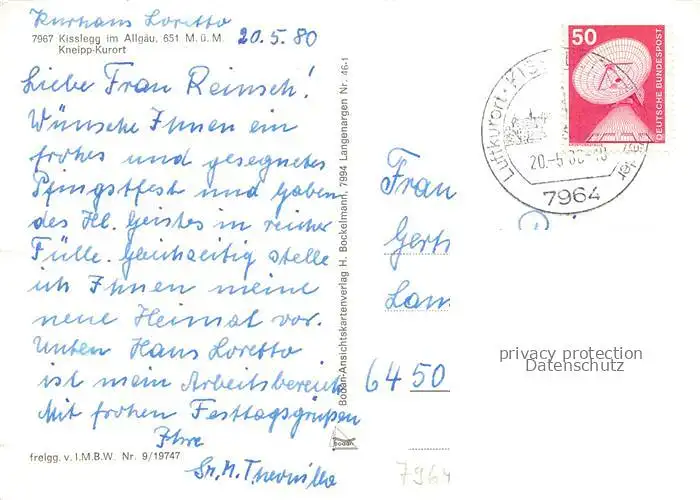 Kurhaus Loretto
7967 Kisslegg im Allgäu, 651 M. ü. M.
20.5.80
Kneipp-Kurort
Liebe Frau Reinsch!
Wünsche Ihnen ein
frohes und gesegnetes
Pfingstfest und Gaben
des Hl. Geistes in reicher
Fülle. Gleichzeitig stelle
ich Ihnen meine
neue Heimat vor.
Unten Haus Loretto
ist mein Arbeitsbereich
Mit frohen Festtagsgrüßen
Ihre
Sr. M.
freigg. v. I.M.B.W. Nr. 9/19747
Bodan-Ansichtskartenverlag H. Bockelmann, 7994 Langenargen Nr. 46-1
bodan
50
DEUTSCHE BUNDESPOST
Luftkurort · KISS
20.-5.80
7964
Frau
Gert
Lan
6450
7964
privacy protection
Datenschutz